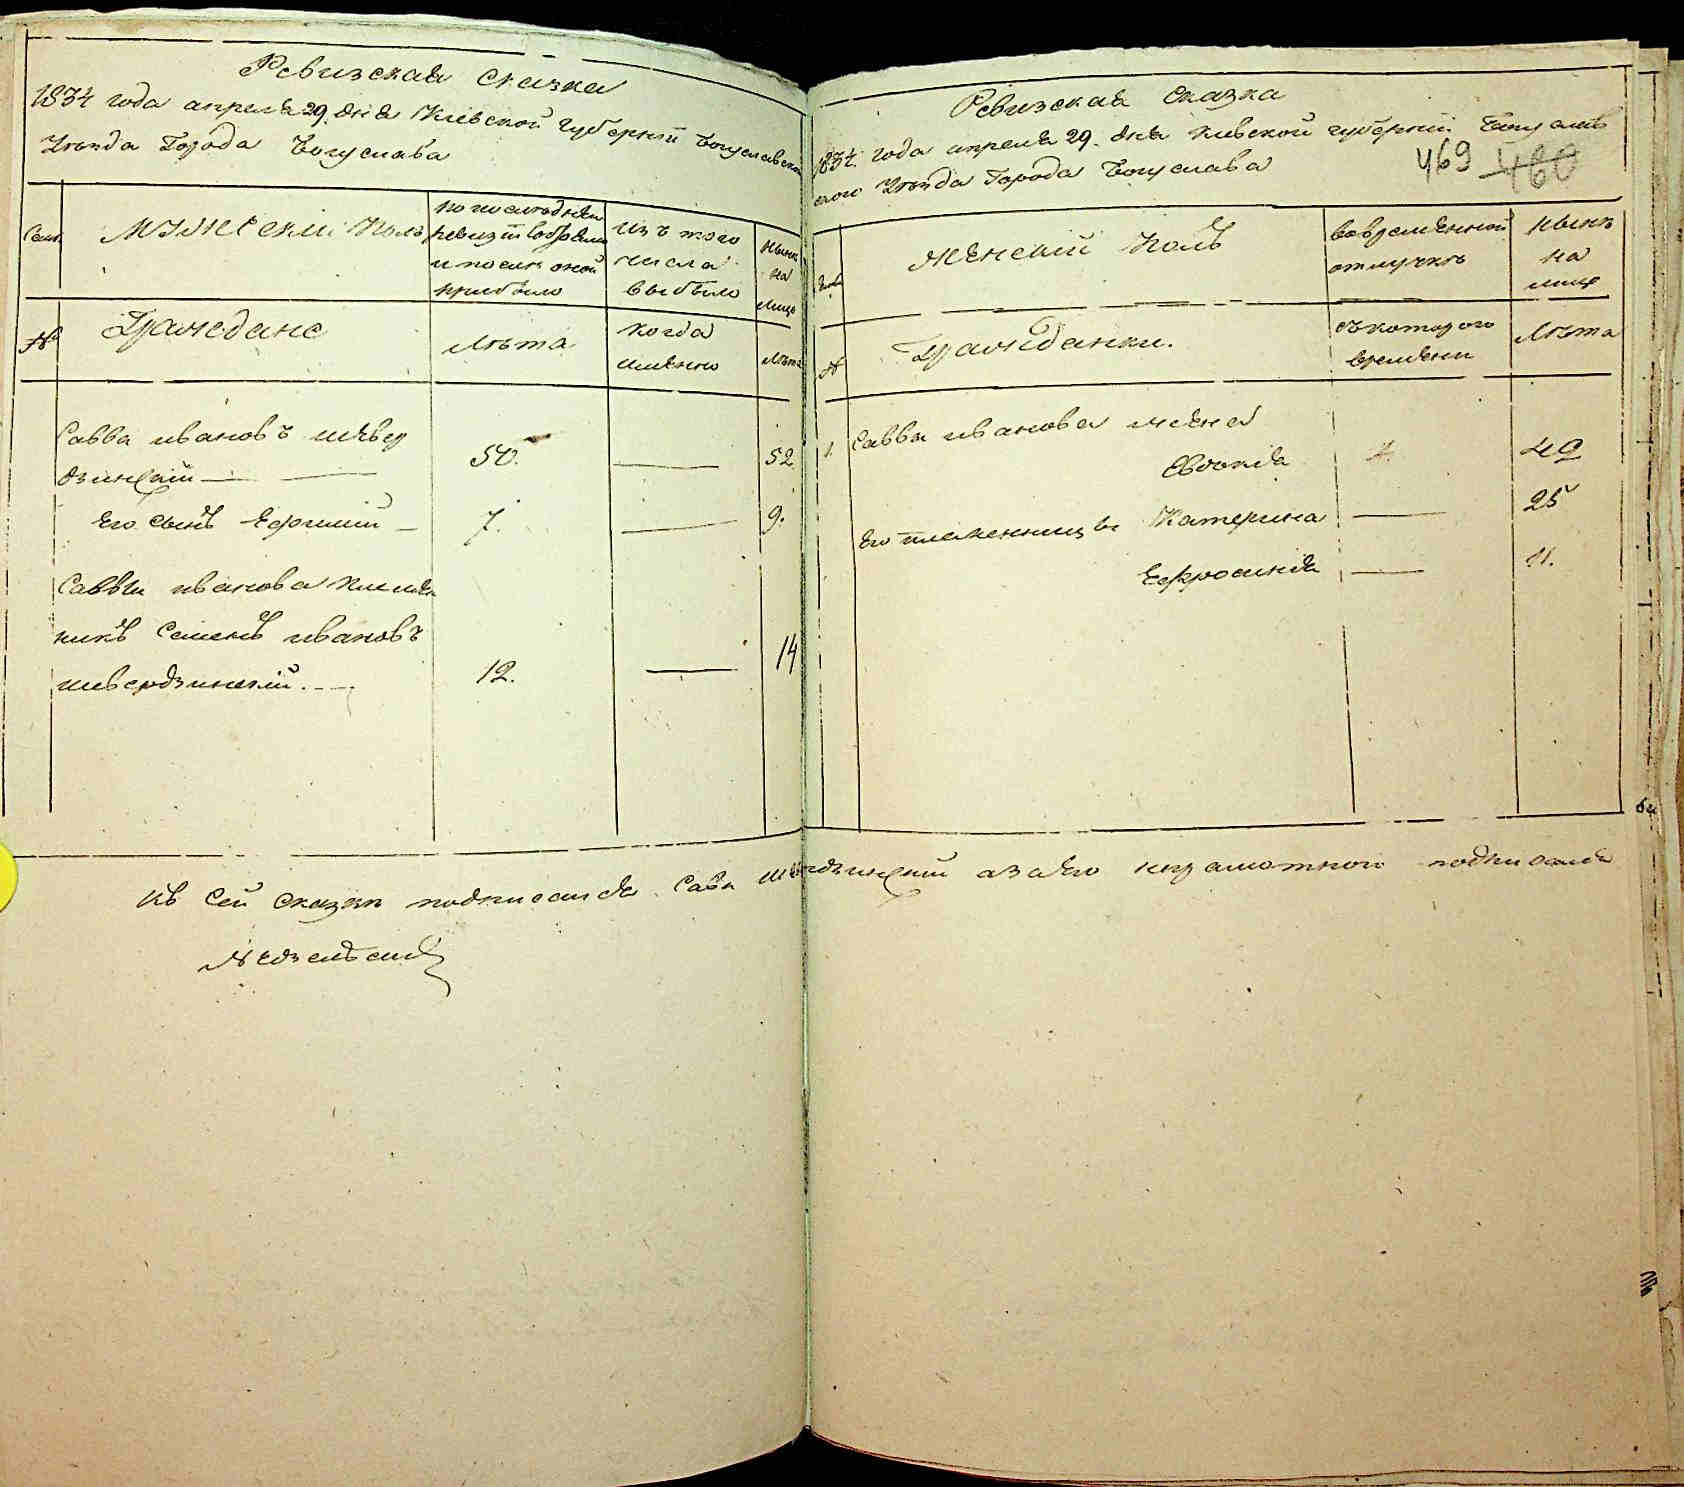 Ревизская сказка
1834 года апреля 29. дня Киевской губерний Богуславского
Уѣзда Города Богуслава
Семьи
Мужеский Полъ
по последней
ревизіи состояло
и после оной
прибыло
изъ того
числа
выбыло
ныне
на
лицо
№
Граждане
Лѣта
когда
именно
Лѣта
Савва ивановъ швер
дзинскій
50.
52
Его сынъ Ефимий
7.
9.
Саввы иванова племян
никъ Семенъ ивановъ
швердзинский.
12.
14
Ревизская сказка
1834. года апреля 29. дня Киевской губерний Богуслав
ского Уѣзда Города Богуслава
469 460
Женский Полъ
во временной
отлучкѣ
ныне
на
лицо
№
Гражданки.
съ которого
времени
Лѣта
1. Саввы иванова жена
Евдокия
49
Его племенницы Катерина
25
Ефросиния
11.
Къ сей сказки подписался Сава швердзинский а за его неграмотного подписался